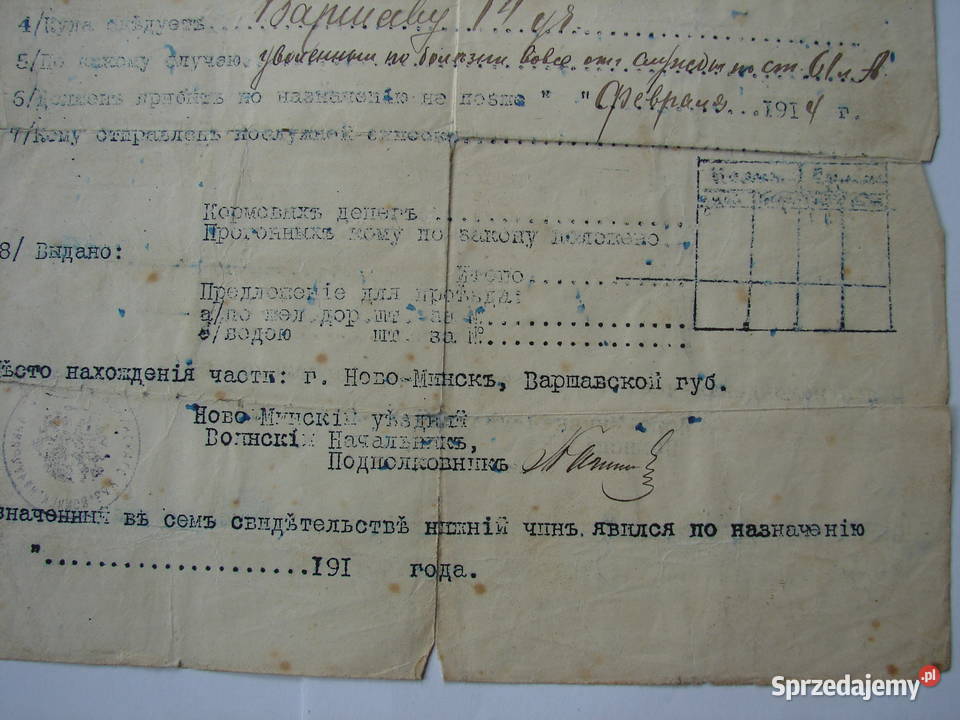 4/Куда слѣдуетъ Варшаву
5/По какому случаю уволенный по болѣзни вовсе отъ службы по ст.
6/Долженъ прибыть по назначенію не позже " " Февраля 1914 г.
7/Кому отправленъ послужной списокъ
Кормовыхъ денегъ
Прогонныхъ кому по закону положено
8/ Выдано:
Итого
Предложеніе для проѣзда:
а/по жел.дор.шт. за №
б/водою шт. за №
ѣсто нахожденія части: г. Ново-Минскъ, Варшавской губ.
Ново-Минскій уѣздный
Воинскій Начальникъ,
Подполковникъ
значенный въ семъ свидѣтельствѣ нижній чинъ явился по назначенію
" 191 года.
Sprzedajemy.pl